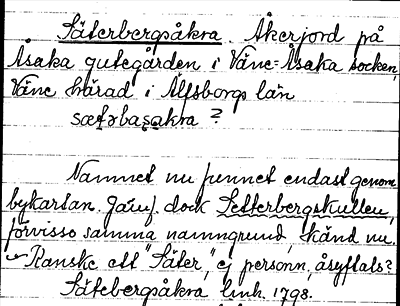 Säterbergsåkra. Åkerjord på
Åsaka gutegården i Väne-Åsaka socken,
Väne härad i Älfsborgs län
sætərbaʂakra ?
Namnet nu funnet endast genom
bykartan. Jämf. dock Setterbergskullen,
förvisso samma namngrund, känd nu.
Kanske ett "Säter", ej personn. åsyftals?
Sätebergsåkra link. 1798.